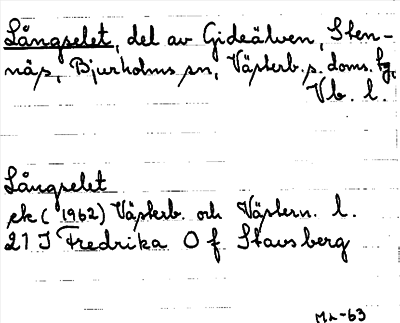 Långselet, del av Gideälven, Sten-
näs, Bjurholms sn, Västerb. s. doms. hg,
Vb. l.
Långselet
ek (1962) Västerb. och Västern. l.
21 J Fredrika O f Stavsberg
-63